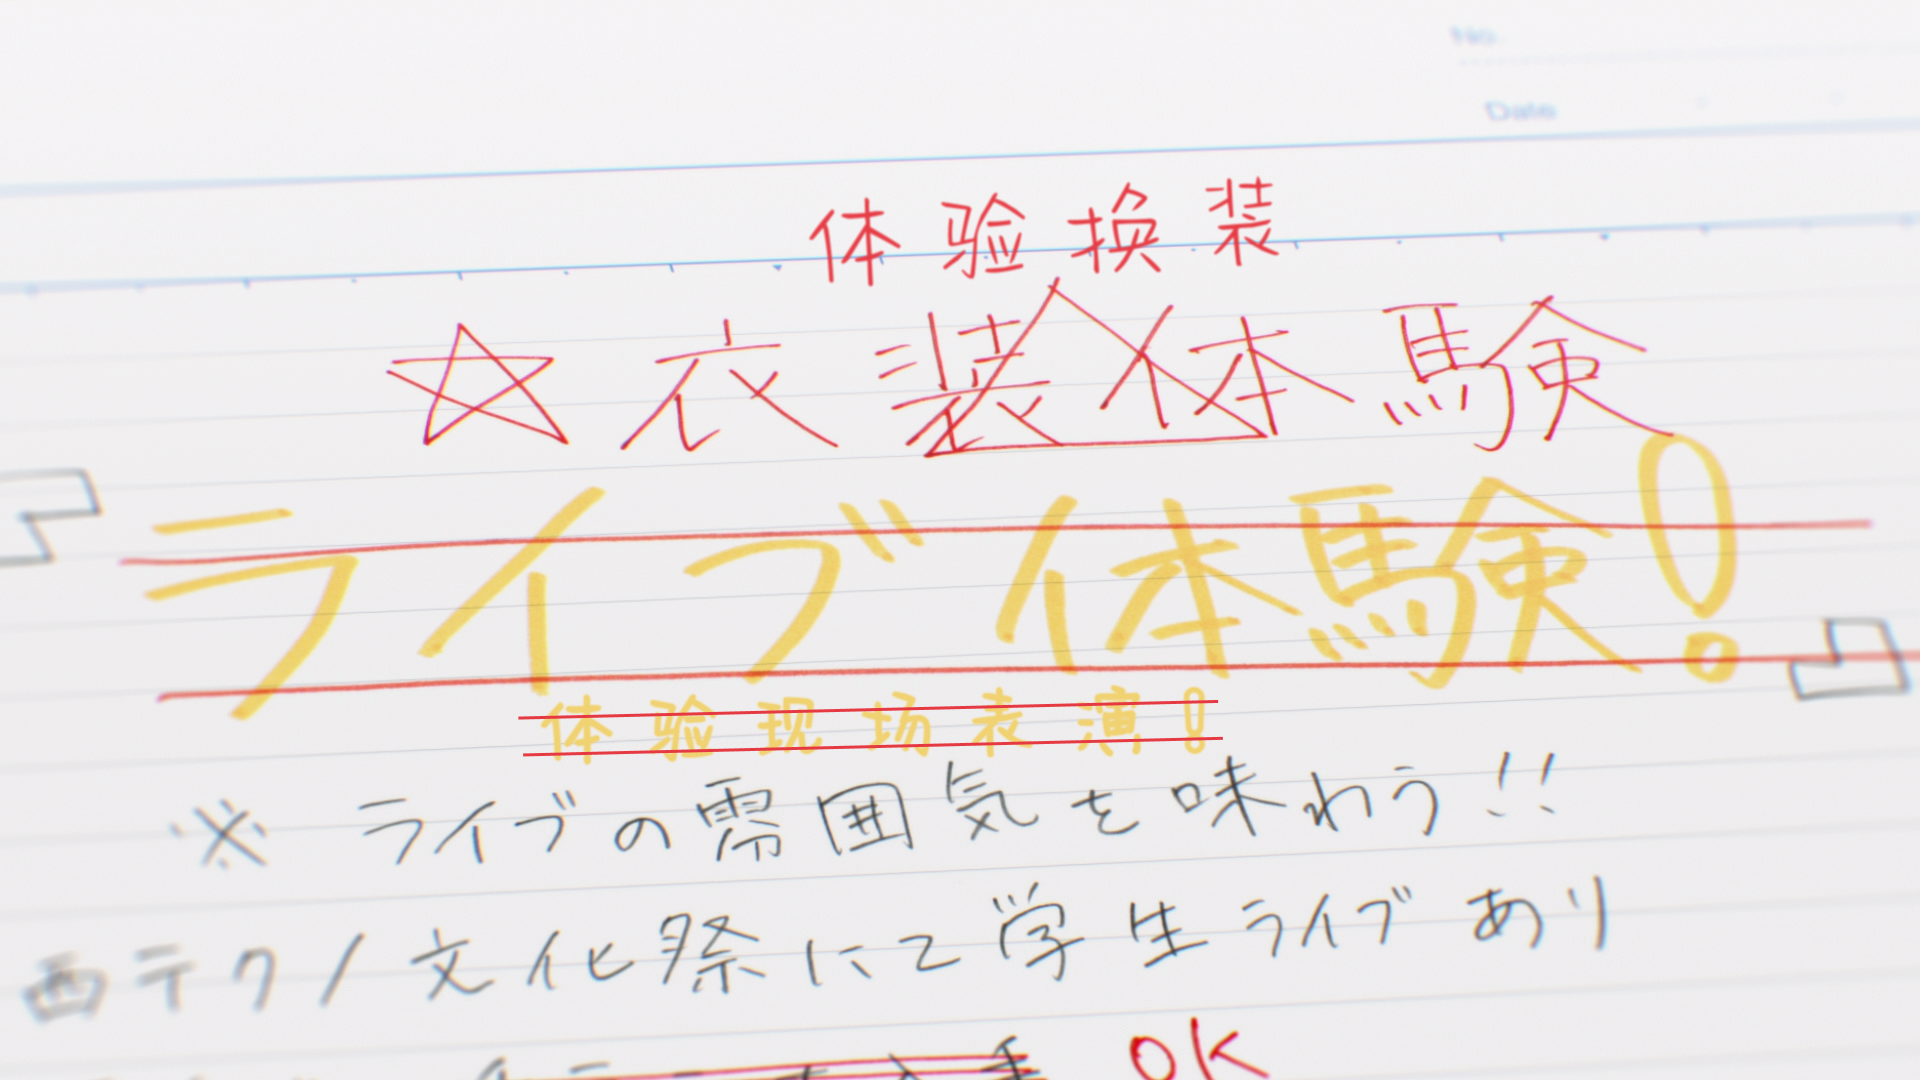 No.
Date
体验换装
☆衣装体験
ライブ体験!
体验现场表演!
※ ライブの雰囲気を味わう!!
西テク/文化祭にて学生ライブあり
OK